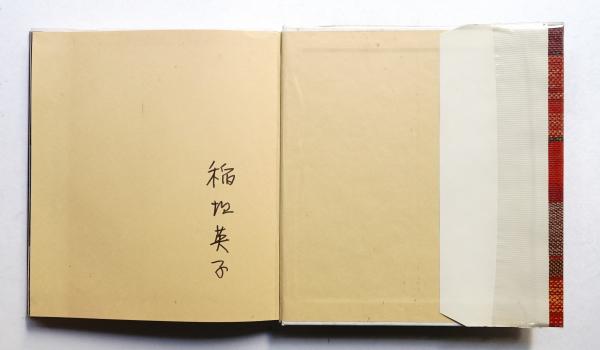 稲垣英子